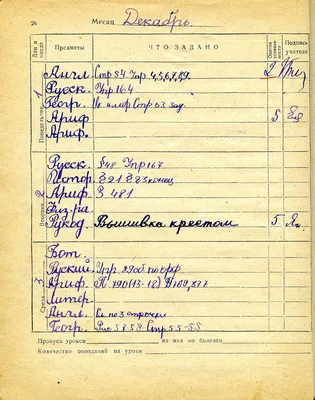 26 Месяц Декабрь
Дни и числа Предметы ЧТО ЗАДАНО Оценка успеваемости Подпись учителя
Понедельник 1
Англ. Стр 54 Упр 4,5,6,7,89. 2
Русск. Упр 164
Геогр. стр 53 зад.
Ариф 5
Ариф.
Вторник 2
Русск. §48 Упр 167
Истор. § 21 § 23 конец
Ариф З 481
Физ-ра
Рукод. Вышивка крестом 5
Среда 3
Бот.
Руский. Упр
Ариф. № 790(13-18)
Литер.
Англ. 3 строчки
Геогр. Рис 57 58 Стр 55-
Пропуск уроков из них по болезни
Количество опозданий на уроки